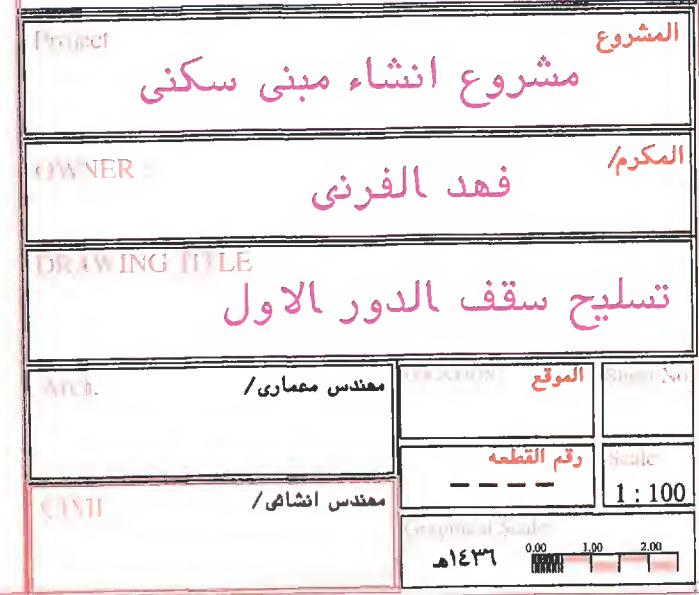 Project المشروع
مشروع انشاء مبنى سكنى
OWNER : المكرم/
فهد الفرنى
DRAWING TITLE
تسليح سقف الدور الاول
Arch. مهندس معمارى/
LOCATION الموقع
Sheet No.
رقم القطعه
– – – –
Scale
1 : 100
CIVIL مهندس انشائى/
Graphical Scale
١٤٣٦هـ
0.00 1.00 2.00